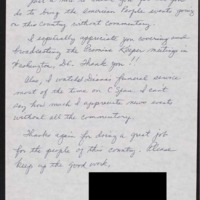 do to bring the American People events going
on this country without commentary.
I especially appreciate you covering and
broadcasting the Promise Keeper meetings in
Washington, DC. Thank you!!
Also, I watched Diana's funeral service
most of the time on C Span. I can't
say how much I appreciate news events
without all the commentary.
Thanks again for doing a great job
for the people of this country. Please
keep up the good work.